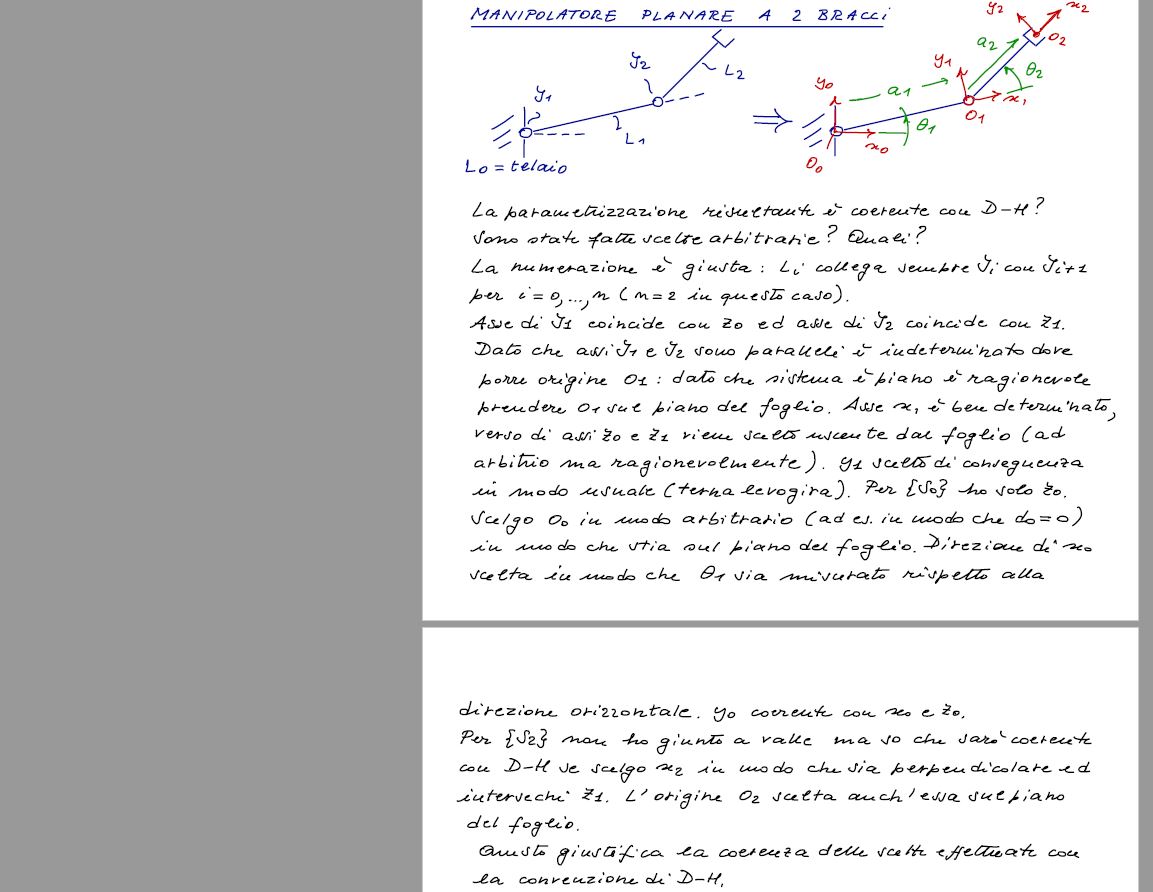 MANIPOLATORE PLANARE A 2 BRACCI
J1
J2
L2
L1
L0 = telaio
⇒
y0
x0
O0
a1
θ1
y1
x1
O1
a2
θ2
y2
x2
O2
La parametrizzazione risultante è coerente con D-H?
Sono state fatte scelte arbitrarie? Quali?
La numerazione è giusta: Li collega sempre Ji con Ji+1
per i=0,...,n (n=2 in questo caso).
Asse di J1 coincide con z0 ed asse di J2 coincide con z1.
Dato che assi J1 e J2 sono paralleli è indeterminato dove
porre origine O1: dato che sistema è piano è ragionevole
prendere O1 sul piano del foglio. Asse x1 è ben determinato,
verso di assi z0 e z1 viene scelto uscente dal foglio (ad
arbitrio ma ragionevolmente). y1 scelto di conseguenza
in modo usuale (terna levogira). Per {S0} ho solo z0.
Scelgo O0 in modo arbitrario (ad es. in modo che d0=0)
in modo che stia sul piano del foglio. Direzione di x0
scelta in modo che θ1 sia misurato rispetto alla
direzione orizzontale. y0 coerente con x0 e z0.
Per {S2} non ho giunto a valle ma so che sarò coerente
con D-H se scelgo x2 in modo che sia perpendicolare ed
intersechi z1. L'origine O2 scelta anch'essa sul piano
del foglio.
Questo giustifica la coerenza delle scelte effettuate con
la convenzione di D-H.